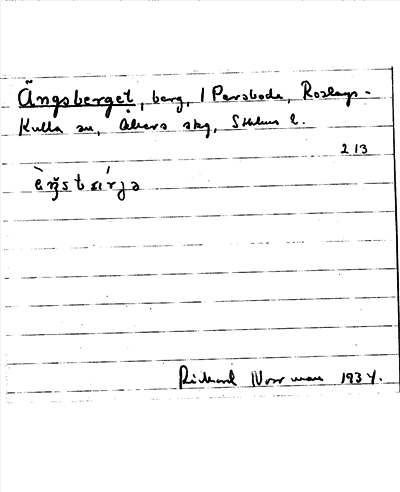 Ängsberget, berg, i Persboda, Roslags-
Kulla sn, Åkers skg, Sthlms l.
213
Rickard Norrman 1934.